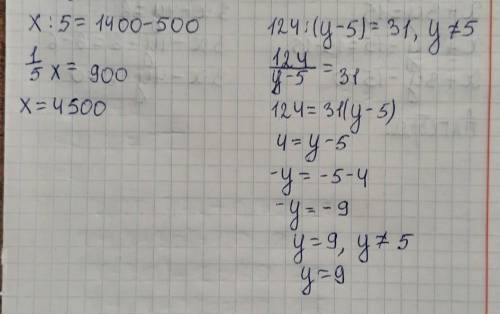 x : 5 = 1400 - 500
1/5 x = 900
x = 4500
124 : (y - 5) = 31, y ≠ 5
124/y-5 = 31
124 = 31(y - 5)
4 = y - 5
-y = -5 - 4
-y = -9
y = 9, y ≠ 5
y = 9